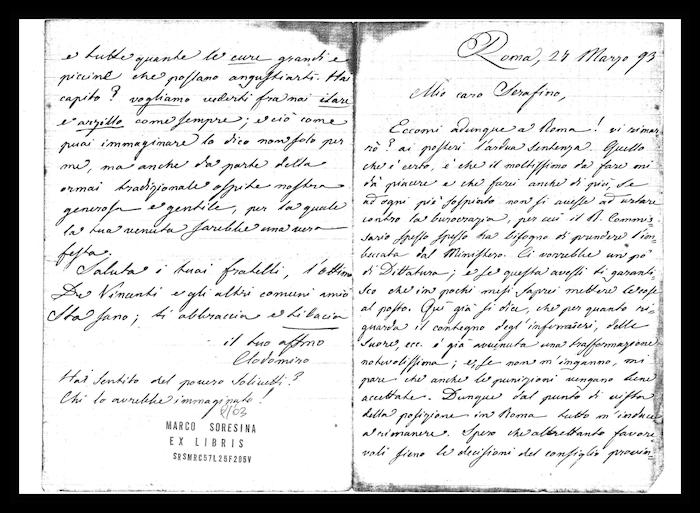 e tutte quante le cure grandi e
piccine che possano angustiarti. Hai
capito? vogliamo vederti fra noi ilare
e arzillo come sempre; e ciò come
puoi immaginare lo dico non solo per
me, ma anche da parte della
ormai tradizionale ospite nostra
generosa e gentile, per la quale
la tua venuta sarebbe una vera
festa.
Saluta i tuoi fratelli, l'ottimo
De Vincenti e gli altri comuni amici
Sta sano; ti abbraccia e ti bacia
il tuo affmo
Clodomiro
Hai sentito del povero Solivetti?
Chi lo avrebbe immaginato!
MARCO SORESINA
EX LIBRIS
SRSMRC57L25F205V
Roma, 24 Marzo 93
Mio caro Serafino,
Eccomi adunque a Roma! vi rimar
rò? ai posteri l'ardua sentenza. Quello
che è certo, è che il moltissimo da fare mi
dà piacere e che farei anche di più, se
ad ogni piè sospinto non si avesse ad urtare
contro la burocrazia, per cui il R. Commis-
sario spesso spesso ha bisogno di prendere l'im-
beccata dal Ministero. Ci vorrebbe un po'
di Dittatura; e se questa avessi ti garanti-
sco che in pochi mesi saprei mettere le cose
al posto. Qui già si dice, che per quanto ri-
guarda il contegno degl'infermieri, delle
Suore, ecc. è già avvenuta una trasformazione
notevolissima; e, se non m'inganno, mi
pare che anche le punizioni vengano bene
accettate. Dunque dal punto di vista
della posizione in Roma tutto m'induce
a rimanere. Spero che altrettanto favore-
voli sieno le decisioni del consiglio provin-